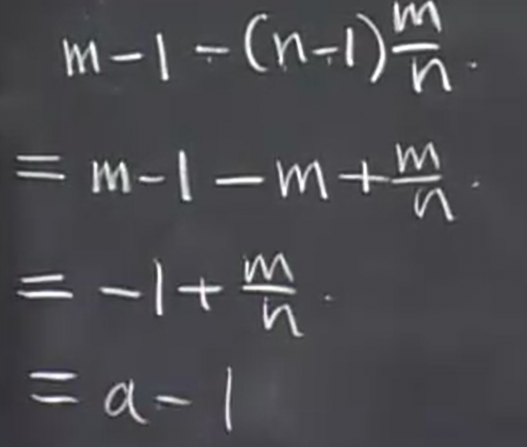 m-1-(n-1)m/n.
=m-1-m+m/n.
=-1+m/n.
=a-1